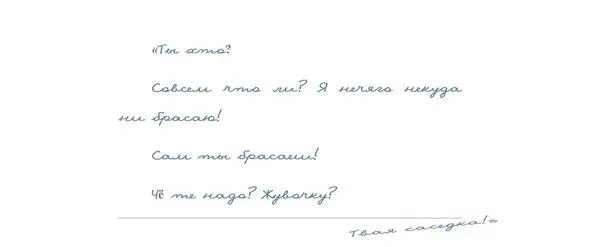 «Ты хто?
Совсем что ли? Я нечяго некуда
ни брасаю!
Сам ты брасаеш!
Чё те надо? Жувочку?
Твая саседка!»